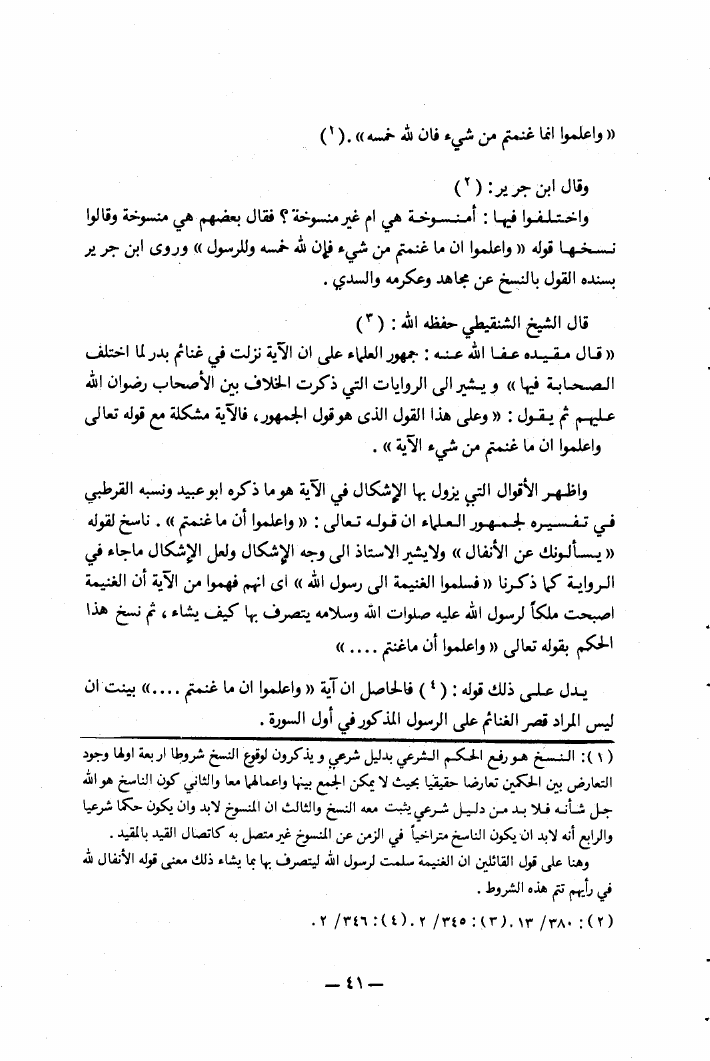 « واعلموا انما غنمتم من شيء فان لله خمسه » . (١)
وقال ابن جرير : (٢)
واختلفوا فيها : أمنسوخة هي ام غير منسوخة ؟ فقال بعضهم هي منسوخة وقالوا
نسخها قوله « واعلموا ان ما غنمتم من شيء فإن لله خمسه وللرسول » وروى ابن جرير
بسنده القول بالنسخ عن مجاهد وعكرمه والسدي .
قال الشيخ الشنقيطي حفظه الله : (٣)
« قال مقيده عفا الله عنه : جمهور العلماء على ان الآية نزلت في غنائم بدر لما اختلف
الصحابة فيها » ويشير الى الروايات التي ذكرت الخلاف بين الأصحاب رضوان الله
عليهم ثم يقول : « وعلى هذا القول الذى هو قول الجمهور، فالآية مشكلة مع قوله تعالى
واعلموا ان ما غنمتم من شيء الآية » .
واظهر الأقوال التي يزول بها الإشكال في الآية هو ما ذكره ابو عبيد ونسبه القرطبي
في تفسيره لجمهور العلماء ان قوله تعالى : « واعلموا أن ما غنمتم » . ناسخ لقوله
« يسألونك عن الأنفال » ولا يشير الاستاذ الى وجه الإشكال ولعل الإشكال ماجاء في
الرواية كما ذكرنا « فسلموا الغنيمة الى رسول الله » اى انهم فهموا من الآية أن الغنيمة
اصبحت ملكاً لرسول الله عليه صلوات الله وسلامه يتصرف بها كيف يشاء ، ثم نسخ هذا
الحكم بقوله تعالى « واعلموا أن ماغنتم .... »
يدل على ذلك قوله : (٤) فالحاصل ان آية « واعلموا ان ما غنمتم ....» بينت ان
ليس المراد قصر الغنائم على الرسول المذكور في أول السورة .
(١) : النسخ هو رفع الحكم الشرعي بدليل شرعي ويذكرون لوقوع النسخ شروطا اربعة اولها وجود
التعارض بين الحكمين تعارضا حقيقيا بحيث لا يمكن الجمع بينها واعمالهما معا والثاني كون الناسخ هو الله
جل شأنه فلا بد من دليل شرعي يثبت معه النسخ والثالث ان المنسوخ لابد وان يكون حكما شرعيا
والرابع أنه لابد ان يكون الناسخ متراخياً في الزمن عن المنسوخ غير متصل به كاتصال القيد بالمقيد .
وهنا على قول القائلين ان الغنيمة سلمت لرسول الله ليتصرف بها بما يشاء ذلك معنى قوله الأنفال لله
في رأيهم تتم هذه الشروط .
(٢) : ٣٨٠/ ١٣. (٣) : ٣٤٥/ ٢. (٤) : ٣٤٦/ ٢ .
— ٤١ —